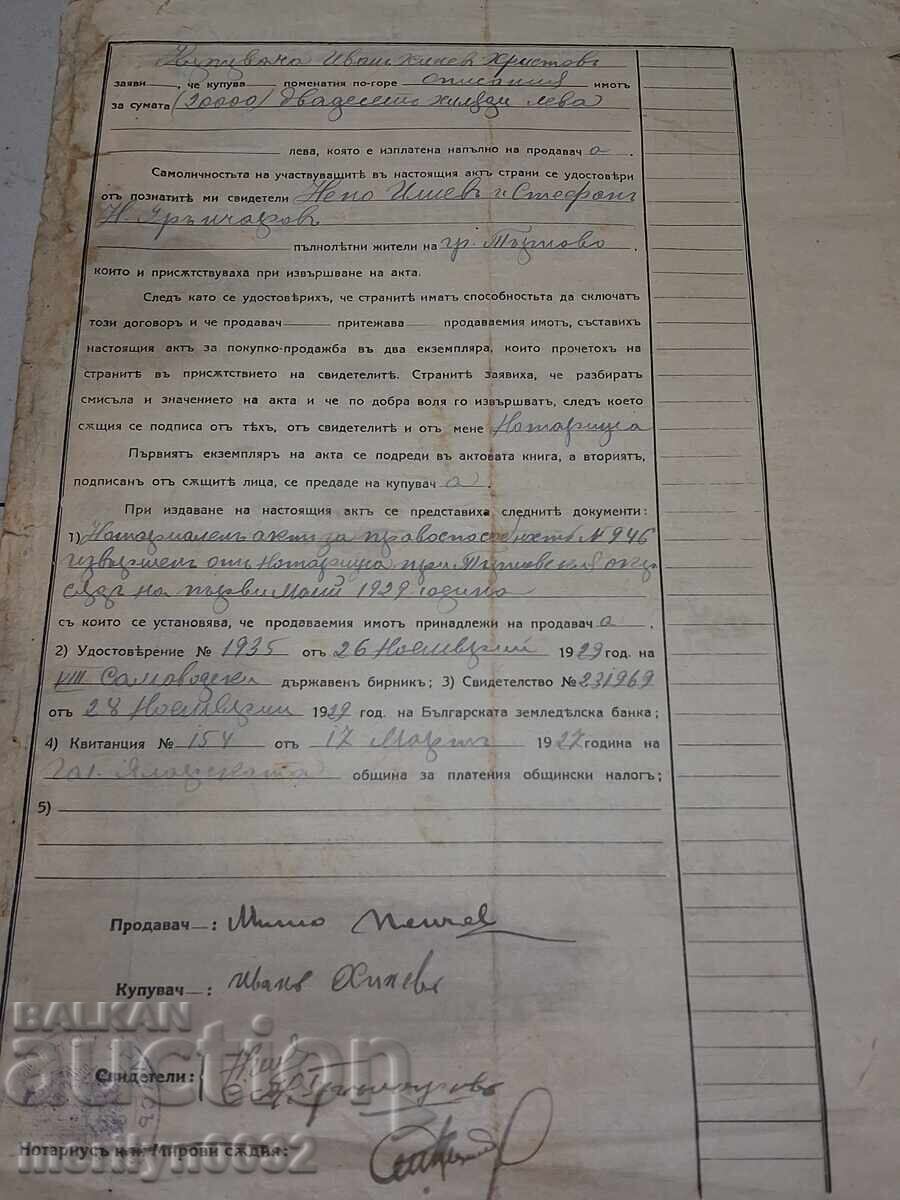 Купувача Иванъ Хинев Христовъ
заяви —, че купува — поменатия по-горе описания имотъ
за сумата (20000) двадесетъ хиляди лева
лева, която е изплатена напълно на продавач а.
Самоличностьта на участвуващитѣ въ настоящия актъ страни се удостовѣри
отъ познатитѣ ми свидетели Нено Илиевъ и Стефанъ
Н. Грънчаровъ
пълнолѣтни жители на гр. Търново
които и присѫтствуваха при извършване на акта.
Следъ като се удостовѣрихъ, че странитѣ иматъ способностьта да сключатъ
този договоръ и че продавач — притежава — продаваемия имотъ, съставихъ
настоящия актъ за покупко-продажба въ два екземпляра, които прочетохъ на
странитѣ въ присѫтствието на свидетелитѣ. Странитѣ заявиха, че разбиратъ
смисъла и значението на акта и че по добра воля го извършватъ, следъ което
сѫщия се подписа отъ тѣхъ, отъ свидетелитѣ и отъ мене Нотариуса
Първиятъ екземпляръ на акта се подреди въ актовата книга, а вториятъ,
подписанъ отъ сѫщитѣ лица, се предаде на купувач а.
При издаване на настоящия актъ се представиха следнитѣ документи:
1) Нотариаленъ актъ за правоспособность № 946
извършенъ отъ Нотариуса при Търновския окр.
сѫдъ на първи Май 1929 година
съ които се установява, че продаваемия имотъ принадлежи на продавач а,
2) Удостовѣрение № 1935 отъ 26 Ноемврий 1929 год. на
VIII Самоводски държавенъ бирникъ; 3) Свидетелство № 231969
отъ 28 Ноемврий 1929 год. на Българската земледѣлска банка;
4) Квитанция № 154 отъ 17 Мартъ 1927 година на
община за платения общински налогъ;
5)
Продавач —: Мишо Пенчев
Купувач —: Иванъ Хиневъ
Свидетели:
Нотариусъ и.и. Мирови сѫдия:
BALKAN
auction
merilyn0682